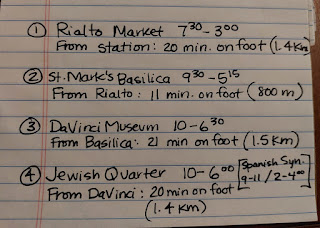 ① Rialto Market 7³⁰-3⁰⁰
From station: 20 min. on foot (1.4Km)
② St. Mark's Basilica 9³⁰-5¹⁵
From Rialto: 11 min. on foot (800 m)
③ DaVinci Museum 10-6³⁰
From Basilica: 21 min on foot (1.5 Km)
④ Jewish Quarter 10-6⁰⁰ [Spanish Syn.
From DaVinci: 20 min on foot 9-11/2-4⁰⁰]
(1.4 Km)